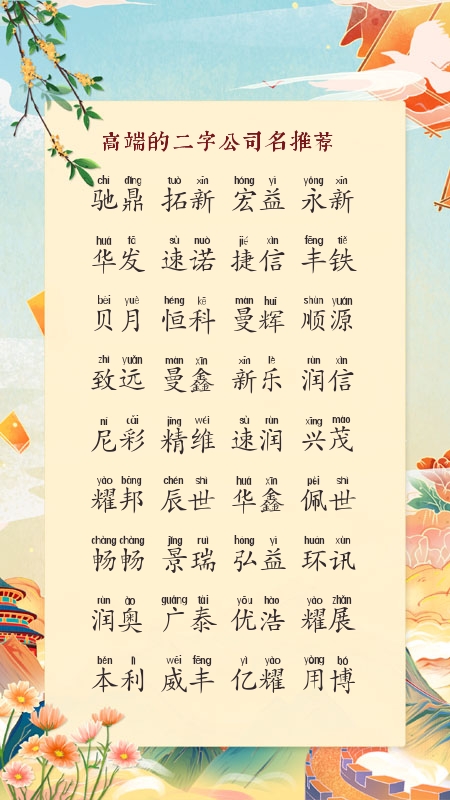 高端的二字公司名推荐
chí dǐng tuò xīn hóng yì yǒng xīn
驰鼎 拓新 宏益 永新
huá fā sù nuò jié xìn fēng tiě
华发 速诺 捷信 丰铁
bèi yuè héng kē màn huī shùn yuán
贝月 恒科 曼辉 顺源
zhì yuǎn màn xīn xīn lè rùn xìn
致远 曼鑫 新乐 润信
ní cǎi jīng wéi sù rùn xīng mào
尼彩 精维 速润 兴茂
yào bāng chén shì huá xīn pèi shì
耀邦 辰世 华鑫 佩世
chàng chàng jǐng ruì hóng yì huán xùn
畅畅 景瑞 弘益 环讯
rùn ào guǎng tài yōu hào yào zhǎn
润奥 广泰 优浩 耀展
běn lì wēi fēng yì yào yòng bó
本利 威丰 亿耀 用博